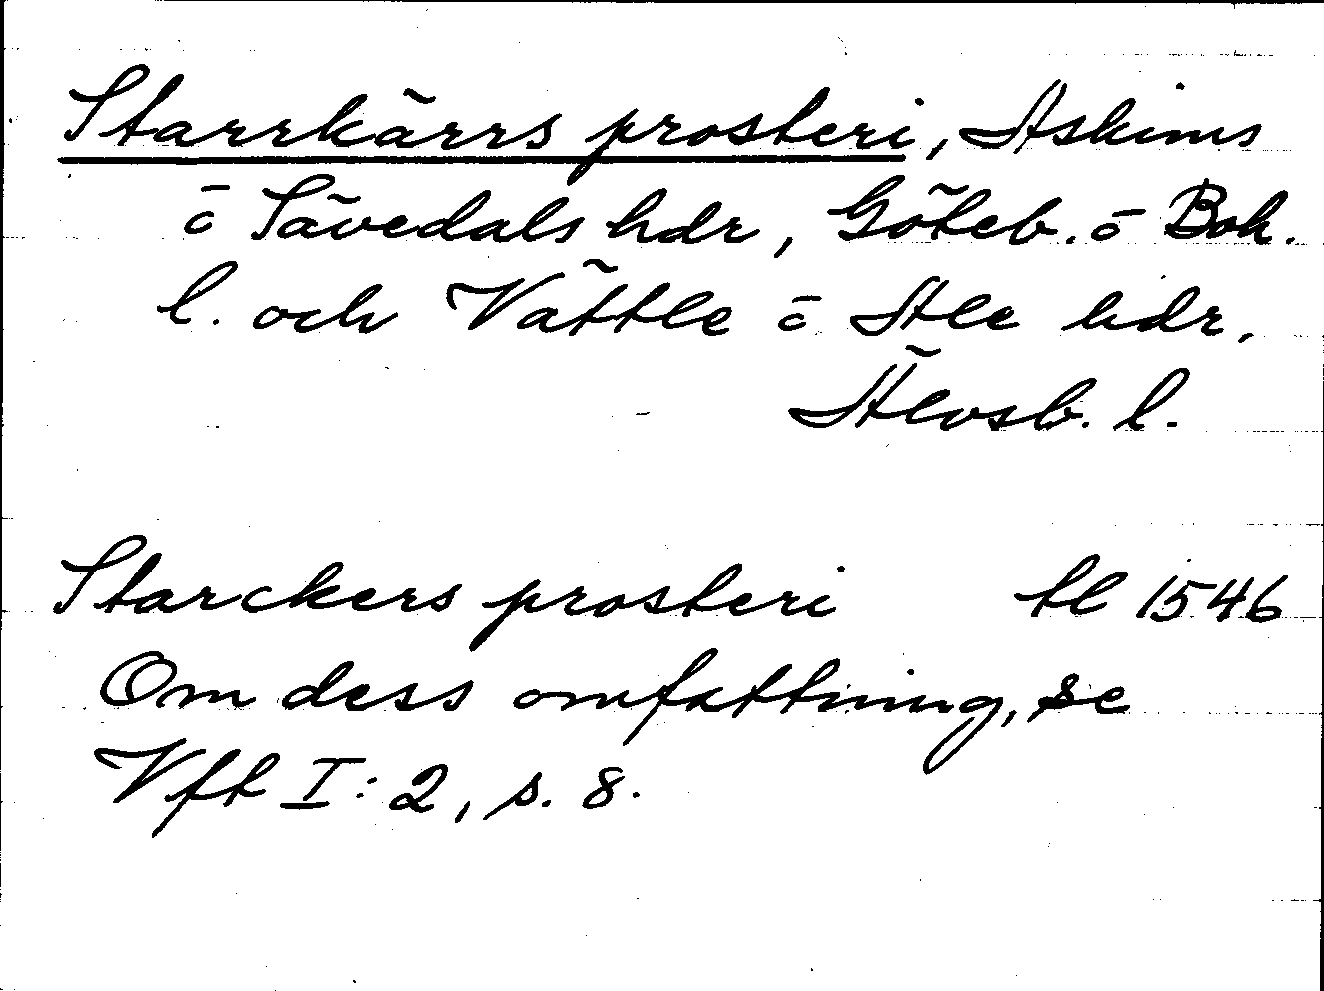 Starrkärrs prosteri, Askims
o Sävedals hdr, Göteb. o Boh.
l. och Vättle o Ale hdr,
Älvsb. l.
Starckers prosteri tl 1546
Om dess omfattning, se
Vft I: 2, s. 8.